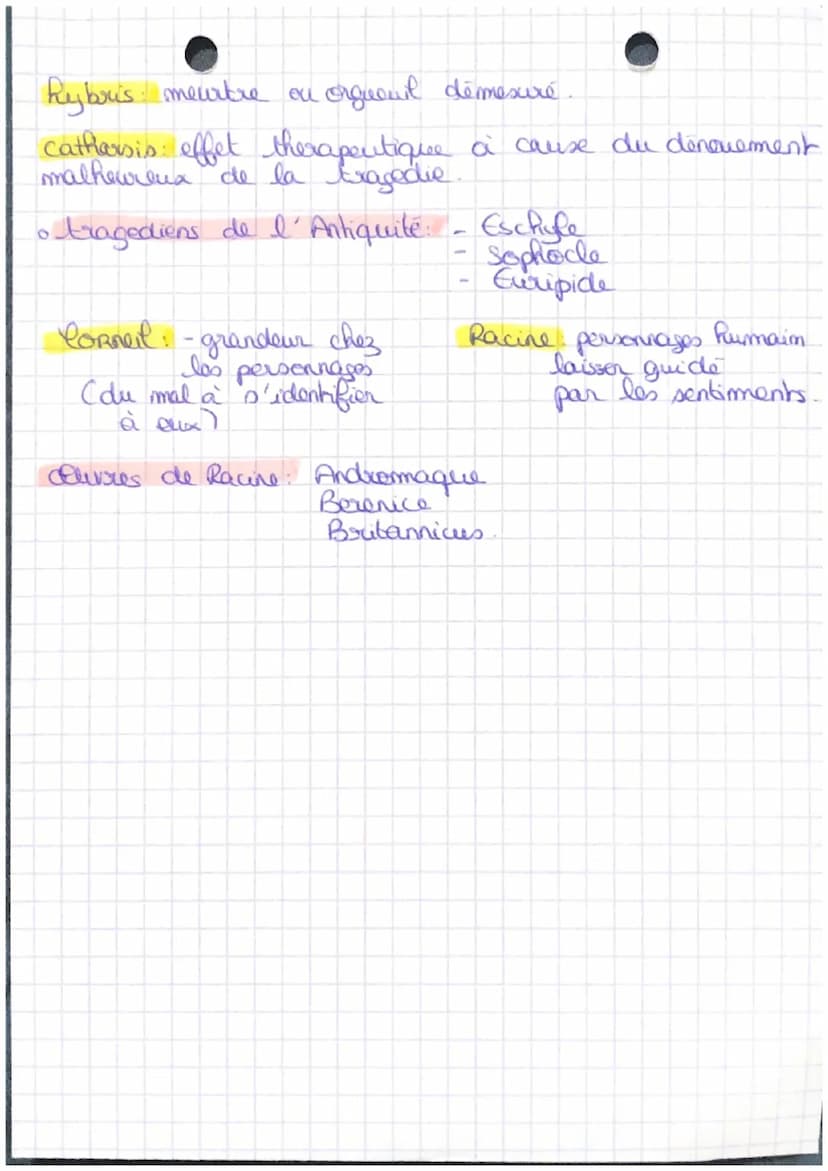 hybris: meurtre ou orgueuil démesuré.
catharsis: effet therapeutique à cause du dénouement
malheureux de la tragedie.
tragediens de l'Antiquité: - Eschyle
- Sophocle
- Euripide
Corneil: - grandeur chez
les personnages
(du mal à s'identifier
à eux)
Racine: personnages humain
laisser guidé
par les sentiments.
Œuvres de Racine: Andromaque
Berenice
Britannicus.